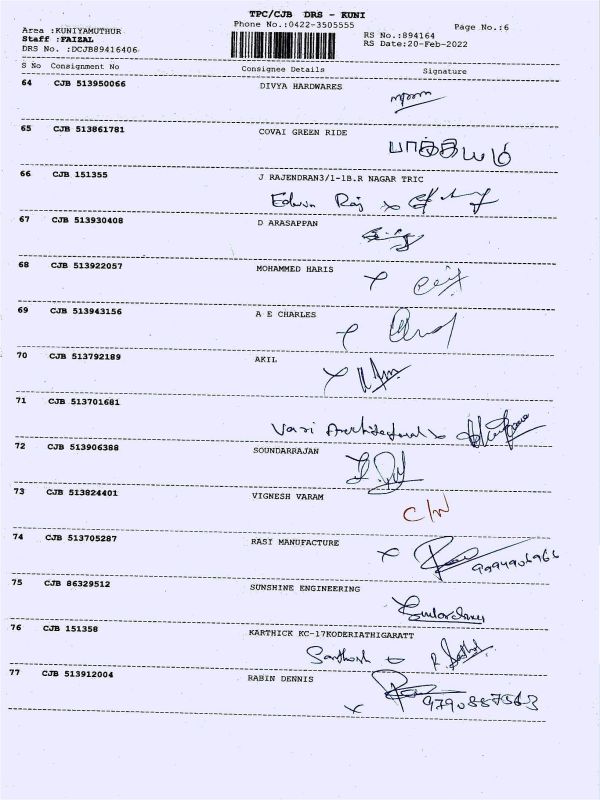 TPC/CJB DRS - KUNI
Phone No.:0422-3505555
Page No.:6
Area :KUNIYAMUTHUR
Staff :FAIZAL
DRS No. :DCJB89416406
RS No.:894164
RS Date:20-Feb-2022
S No Consignment No Consignee Details Signature
64 CJB 513950066 DIVYA HARDWARES
65 CJB 513861781 COVAI GREEN RIDE
66 CJB 151355 J RAJENDRAN3/1-1B.R NAGAR TRIC
Edwin Raj x
67 CJB 513930408 D ARASAPPAN
68 CJB 513922057 MOHAMMED HARIS
x
69 CJB 513943156 A E CHARLES
70 CJB 513792189 AKIL
x
71 CJB 513701681
72 CJB 513906388 SOUNDARRAJAN
73 CJB 513824401 VIGNESH VARAM
C/N
74 CJB 513705287 RASI MANUFACTURE
x 9994906966
75 CJB 86329512 SUNSHINE ENGINEERING
76 CJB 151358 KARTHICK KC-17KODERIATHIGARATT
Santhosh
77 CJB 513912004 RABIN DENNIS
x 9790557563